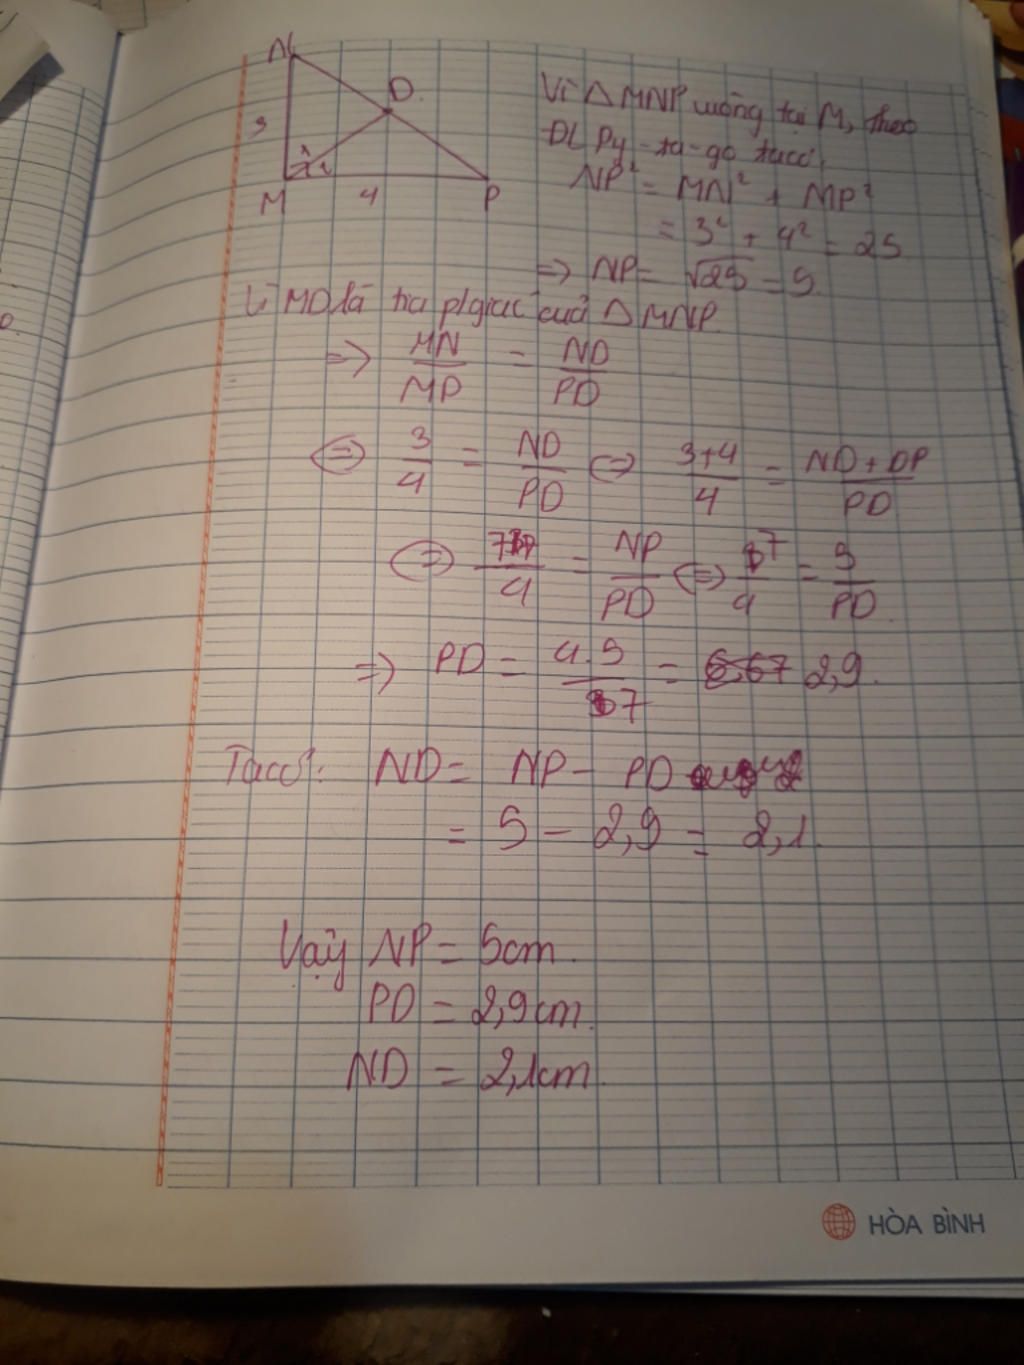 N
D.
3
1 2
M
4
P
Vì △MNP vuông tại M, theo
ĐL Py-ta-go ta có:
NP² = MN² + MP²
= 3² + 4² = 25
=> NP = √25 = 5.
Vì MD là tia p/giác của △MNP.
=> MN/MP = ND/PD
<=> 3/4 = ND/PD <=> 3+4/4 = ND+DP/PD
<=> 7/4 = NP/PD <=> 7/4 = 5/PD.
=> PD = 4.5/7 = 6,67 2,9.
Ta có: ND = NP - PD
= 5 - 2,9 = 2,1.
Vậy NP = 5cm.
PD = 2,9cm.
ND = 2,1cm.
HÒA BÌNH